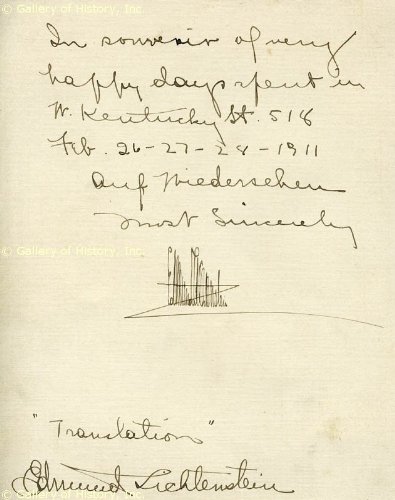 © Gallery of History, Inc.
In souvenir of very
happy days spent in
W. Kentucky St. 518
Feb. 26-27-28-1911
Auf Wiedersehen
Most Sincerely
© Gallery of History, Inc.
"Translation"
Edmund Lichtenstein
© Gallery of History, Inc.